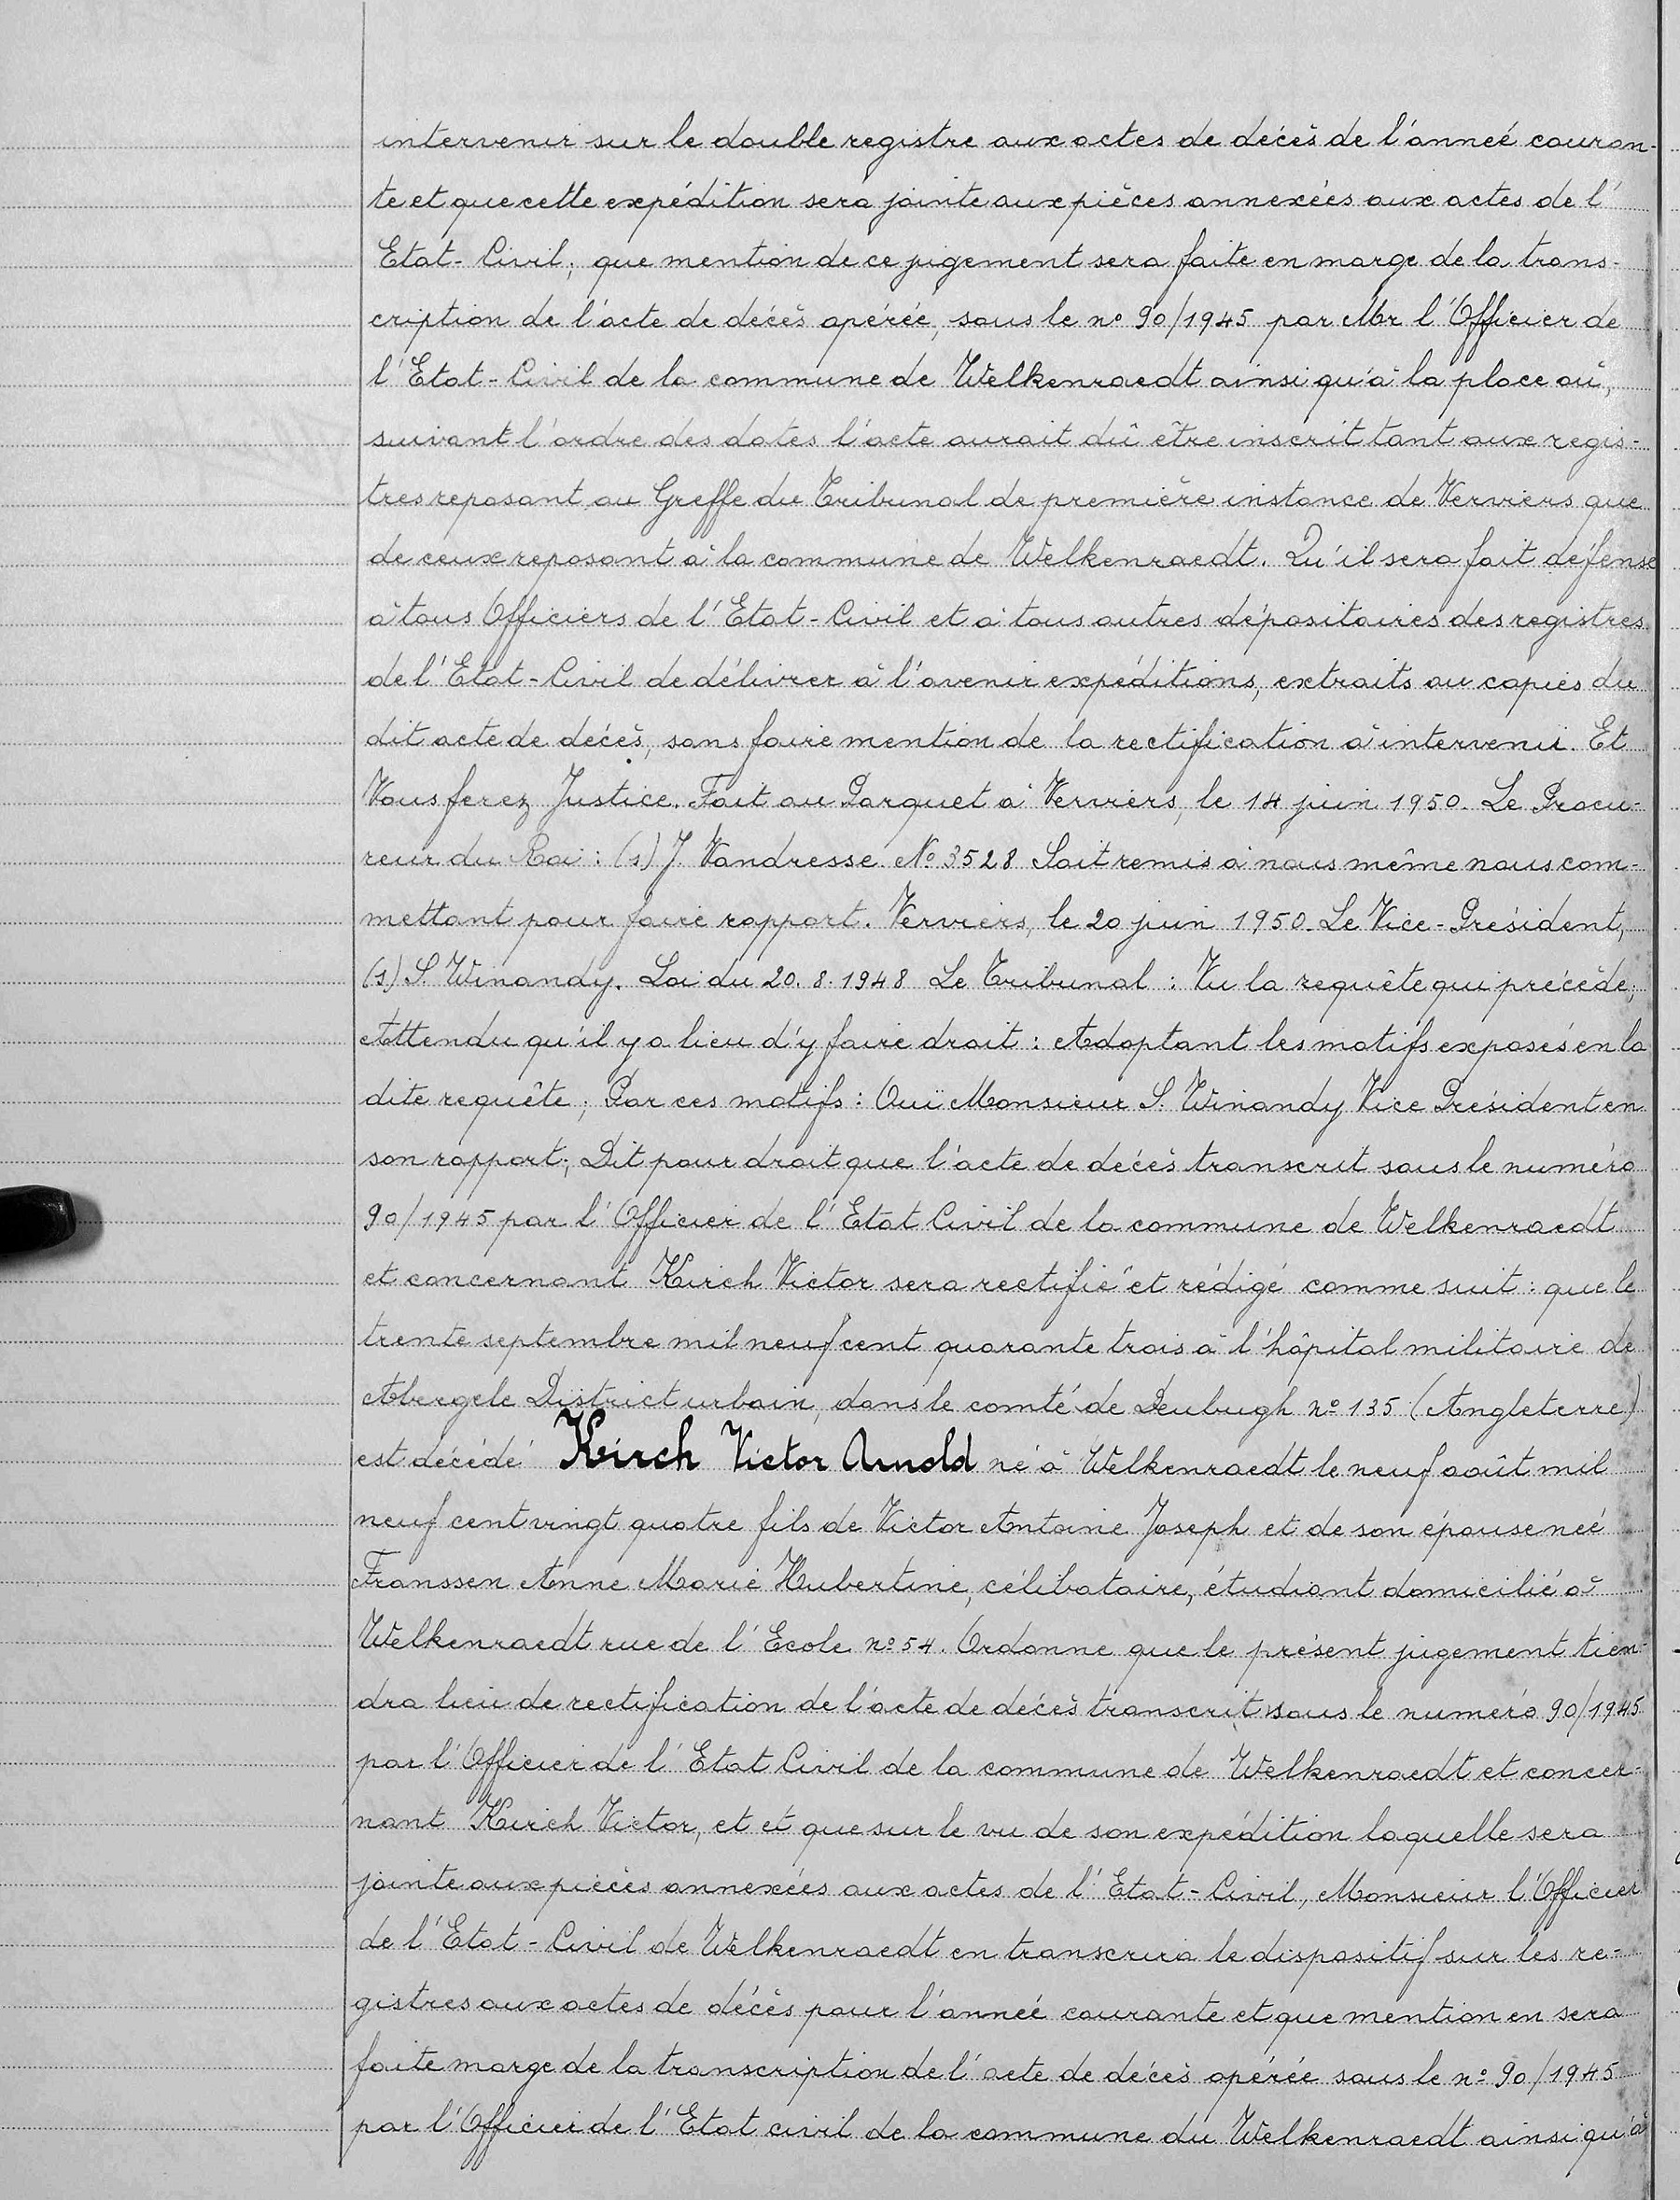 intervenir sur le double registre aux actes de décès de l'année couran-
te et que cette expédition sera jointe aux pièces annexées aux actes de l'
Etat-Civil; que mention de ce jugement sera faite en marge de la trans-
cription de l'acte de décès opérée, sous le nº 90/1945 par Mr l'Officier de
l'Etat-Civil de la commune de Welkenraedt ainsi qu'à la place où,
suivant l'ordre des dates l'acte aurait dû être inscrit tant aux regis-
tres reposant au Greffe du Tribunal de première instance de Verviers que
de ceux reposant à la commune de Welkenraedt. Qu'il sera fait défense
à tous Officiers de l'Etat-Civil et à tous autres dépositaires des registres
de l'Etat-Civil de délivrer à l'avenir expéditions, extraits ou copies du
dit acte de décès, sans faire mention de la rectification à intervenir. Et
Vous ferez Justice. Fait au Parquet à Verviers, le 14 juin 1950. Le Procu-
reur du Roi: (s) J. Vandresse Nº 3528 Soit remis à nous même nous com-
mettant pour faire rapport. Verviers, le 20 juin 1950. Le Vice-Président,
(s) S. Winandy. Loi du 20.8.1948 Le Tribunal: Vu la requête qui précède;
Attendu qu'il y a lieu d'y faire droit: Adoptant les motifs exposés en la
dite requête; Par ces motifs: Ouï Monsieur S. Winandy Vice Président en
son rapport; Dit pour droit que l'acte de décès transcrit sous le numéro
90/1945 par l'Officier de l'Etat Civil de la commune de Welkenraedt
et concernant Kirch Victor sera rectifié et rédigé comme suit: que le
trente septembre mil neuf cent quarante trois à l'hôpital militaire de
Abergele District urbain, dans le comté de Deubugh nº 135 (Angleterre)
est décédé Kirch Victor Arnold né à Welkenraedt le neuf août mil
neuf cent vingt quatre fils de Victor Antoine Joseph et de son épouse née
Franssen Anne Marie Hubertine, célibataire, étudiant domicilié à
Welkenraedt rue de l'Ecole nº 54. Ordonne que le présent jugement tien-
dra lieu de rectification de l'acte de décès transcrit sous le numéro 90/1945
par l'Officier de l'Etat Civil de la commune de Welkenraedt et concer-
nant Kirch Victor, et et que sur le vu de son expédition laquelle sera
jointe aux pièces annexées aux actes de l'Etat-Civil, Monsieur l'Officier
de l'Etat-Civil de Welkenraedt en transcrira le dispositif sur les re-
gistres aux actes de décès pour l'année courante et que mention en sera
faite marge de la transcription de l'acte de décès opérée sous le nº 90/1945
par l'Officier de l'Etat civil de la commune du Welkenraedt ainsi qu'à